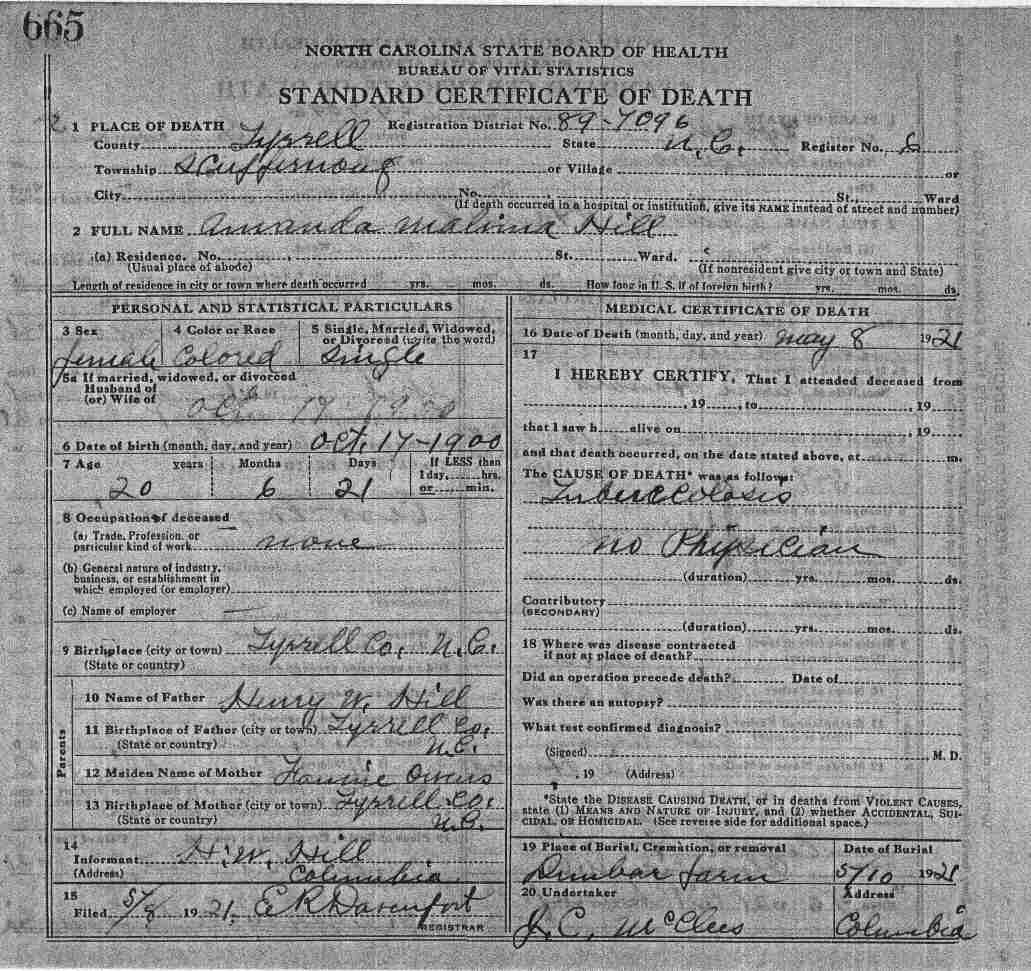 665
NORTH CAROLINA STATE BOARD OF HEALTH
BUREAU OF VITAL STATISTICS
STANDARD CERTIFICATE OF DEATH
1 PLACE OF DEATH Registration District No. 89-7096
County Tyrrell State N.C. Register No. 6
Township Scuppernong or Village or
City No. , St., Ward
(If death occurred in a hospital or institution, give its NAME instead of street and number)
2 FULL NAME Amanda Malissa Hill
(a) Residence. No. , St. Ward.
(Usual place of abode) (If nonresident give city or town and State)
Length of residence in city or town where death occurred yrs. mos. ds. How long in U. S. if of foreign birth? yrs. mos. ds.
PERSONAL AND STATISTICAL PARTICULARS
3 Sex 4 Color or Race 5 Single, Married, Widowed,
or Divorced (write the word)
female Colored Single
5a If married, widowed, or divorced
Husband of
(or) Wife of
Oct. 17 - 1900
6 Date of birth (month, day, and year) Oct. 17-1900
7 Age years Months Days If LESS than
1 day, hrs.
or min.
20 6 21
8 Occupation of deceased
(a) Trade, Profession, or
particular kind of work none
(b) General nature of industry,
business, or establishment in
which employed (or employer)
(c) Name of employer —
9 Birthplace (city or town) Tyrrell Co. N.C.
(State or country)
Parents
10 Name of Father Henry W. Hill
11 Birthplace of Father (city or town) Tyrrell Co.
(State or country) N.C.
12 Maiden Name of Mother Fannie Owens
13 Birthplace of Mother (city or town) Tyrrell Co.
(State or country) N.C.
14
Informant H. W. Hill
(Address) Columbia
15
Filed 5/8 1921. E R Davenport
REGISTRAR
MEDICAL CERTIFICATE OF DEATH
16 Date of Death (month, day, and year) May 8 1921
17
I HEREBY CERTIFY, That I attended deceased from
, 19 , to , 19
that I saw h alive on , 19
and that death occurred, on the date stated above, at m.
The CAUSE OF DEATH* was as follows:
Tuberculosis
no Physician
(duration) yrs. mos. ds.
Contributory
(SECONDARY)
(duration) yrs. mos. ds.
18 Where was disease contracted
if not at place of death?
Did an operation precede death? Date of
Was there an autopsy?
What test confirmed diagnosis?
(Signed) M. D.
, 19 (Address)
*State the DISEASE CAUSING DEATH, or in deaths from VIOLENT CAUSES,
state (1) MEANS AND NATURE OF INJURY, and (2) whether ACCIDENTAL, SUI-
CIDAL, OR HOMICIDAL. (See reverse side for additional space.)
19 Place of Burial, Cremation, or removal Date of Burial
Dunbar farm 5/10 1921
20 Undertaker Address
J. C. McClees Columbia